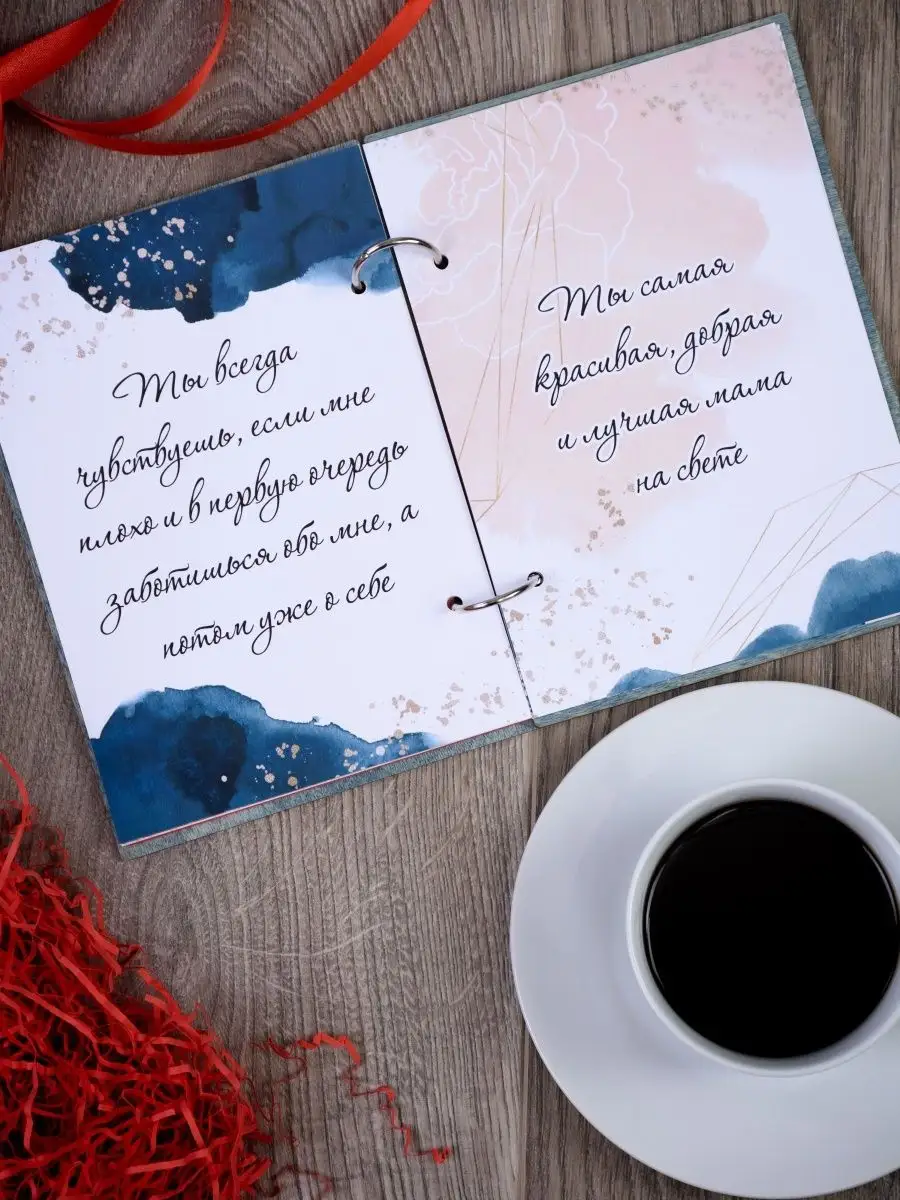 Ты всегда
чувствуешь, если мне
плохо и в первую очередь
заботишься обо мне, а
потом уже о себе
Ты самая
красивая, добрая
и лучшая мама
на свете